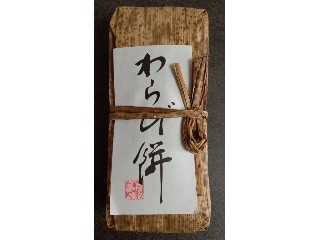 わらび餅